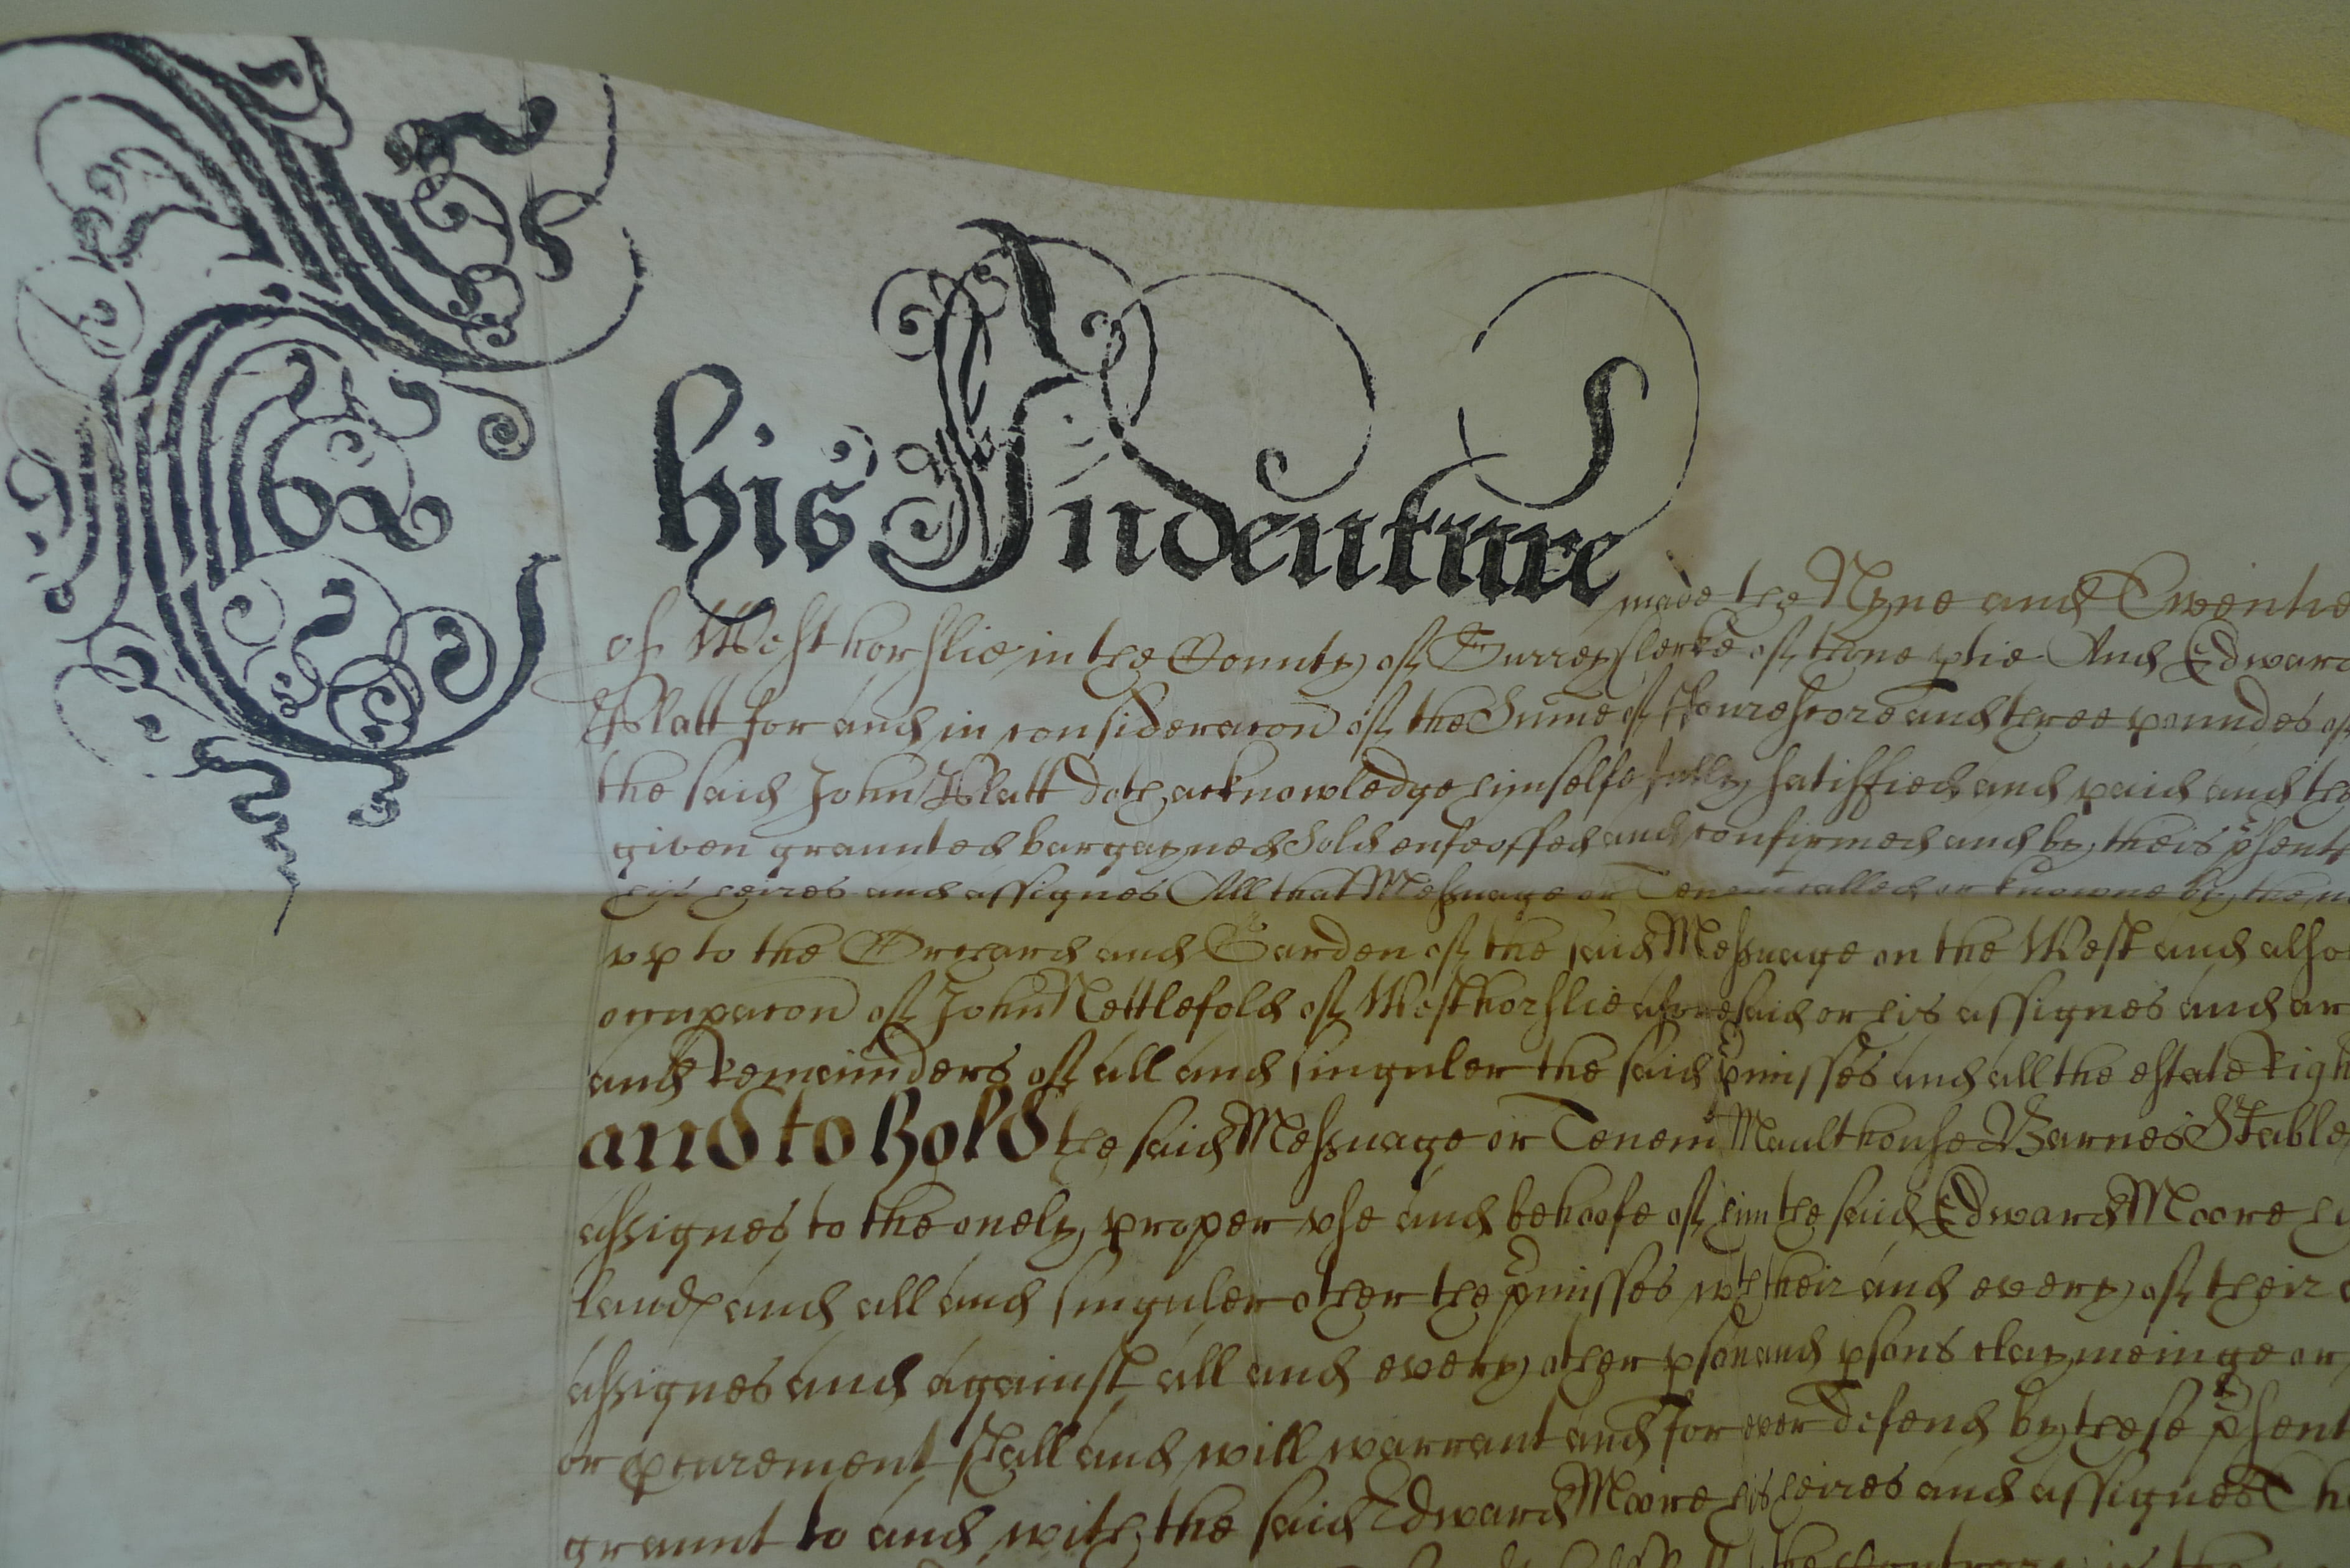 This Indenture made the Nyne and Twentie
of Westhorslie in the County of Surrey Clerke of thone ptie And Edward
Platt for and in consideracon of the Sume of Fourescore and three poundes of
the said John Platt doth acknowledge himselfe fully satisfied and paid and the
given graunted bargayned Sold enfeoffed and confirmed and by theis psents
his heires and assignes All that Messuage or Tenemt called or knowne by the
vp to the Orchard and Garden of the said Messuage on the West and also
occupacon of John Nettlefold of Westhorslie aforesaid or his assignes and
and Remainders of all and singuler the said pmisses and all the estate Right
and to Hold the said Messuage or Tenemt Maulthouse Barnes Stable
assignes to the onely proper vse and behoofe of him the said Edward Moore
land and all and singuler other the pmisses wth their and every of their
assignes and against all and every other pson and psons claymeinge or
or pcurement shall and will warrant and for ever defend by these psent
graunt to and with the said Edward Moore his heires and assignes